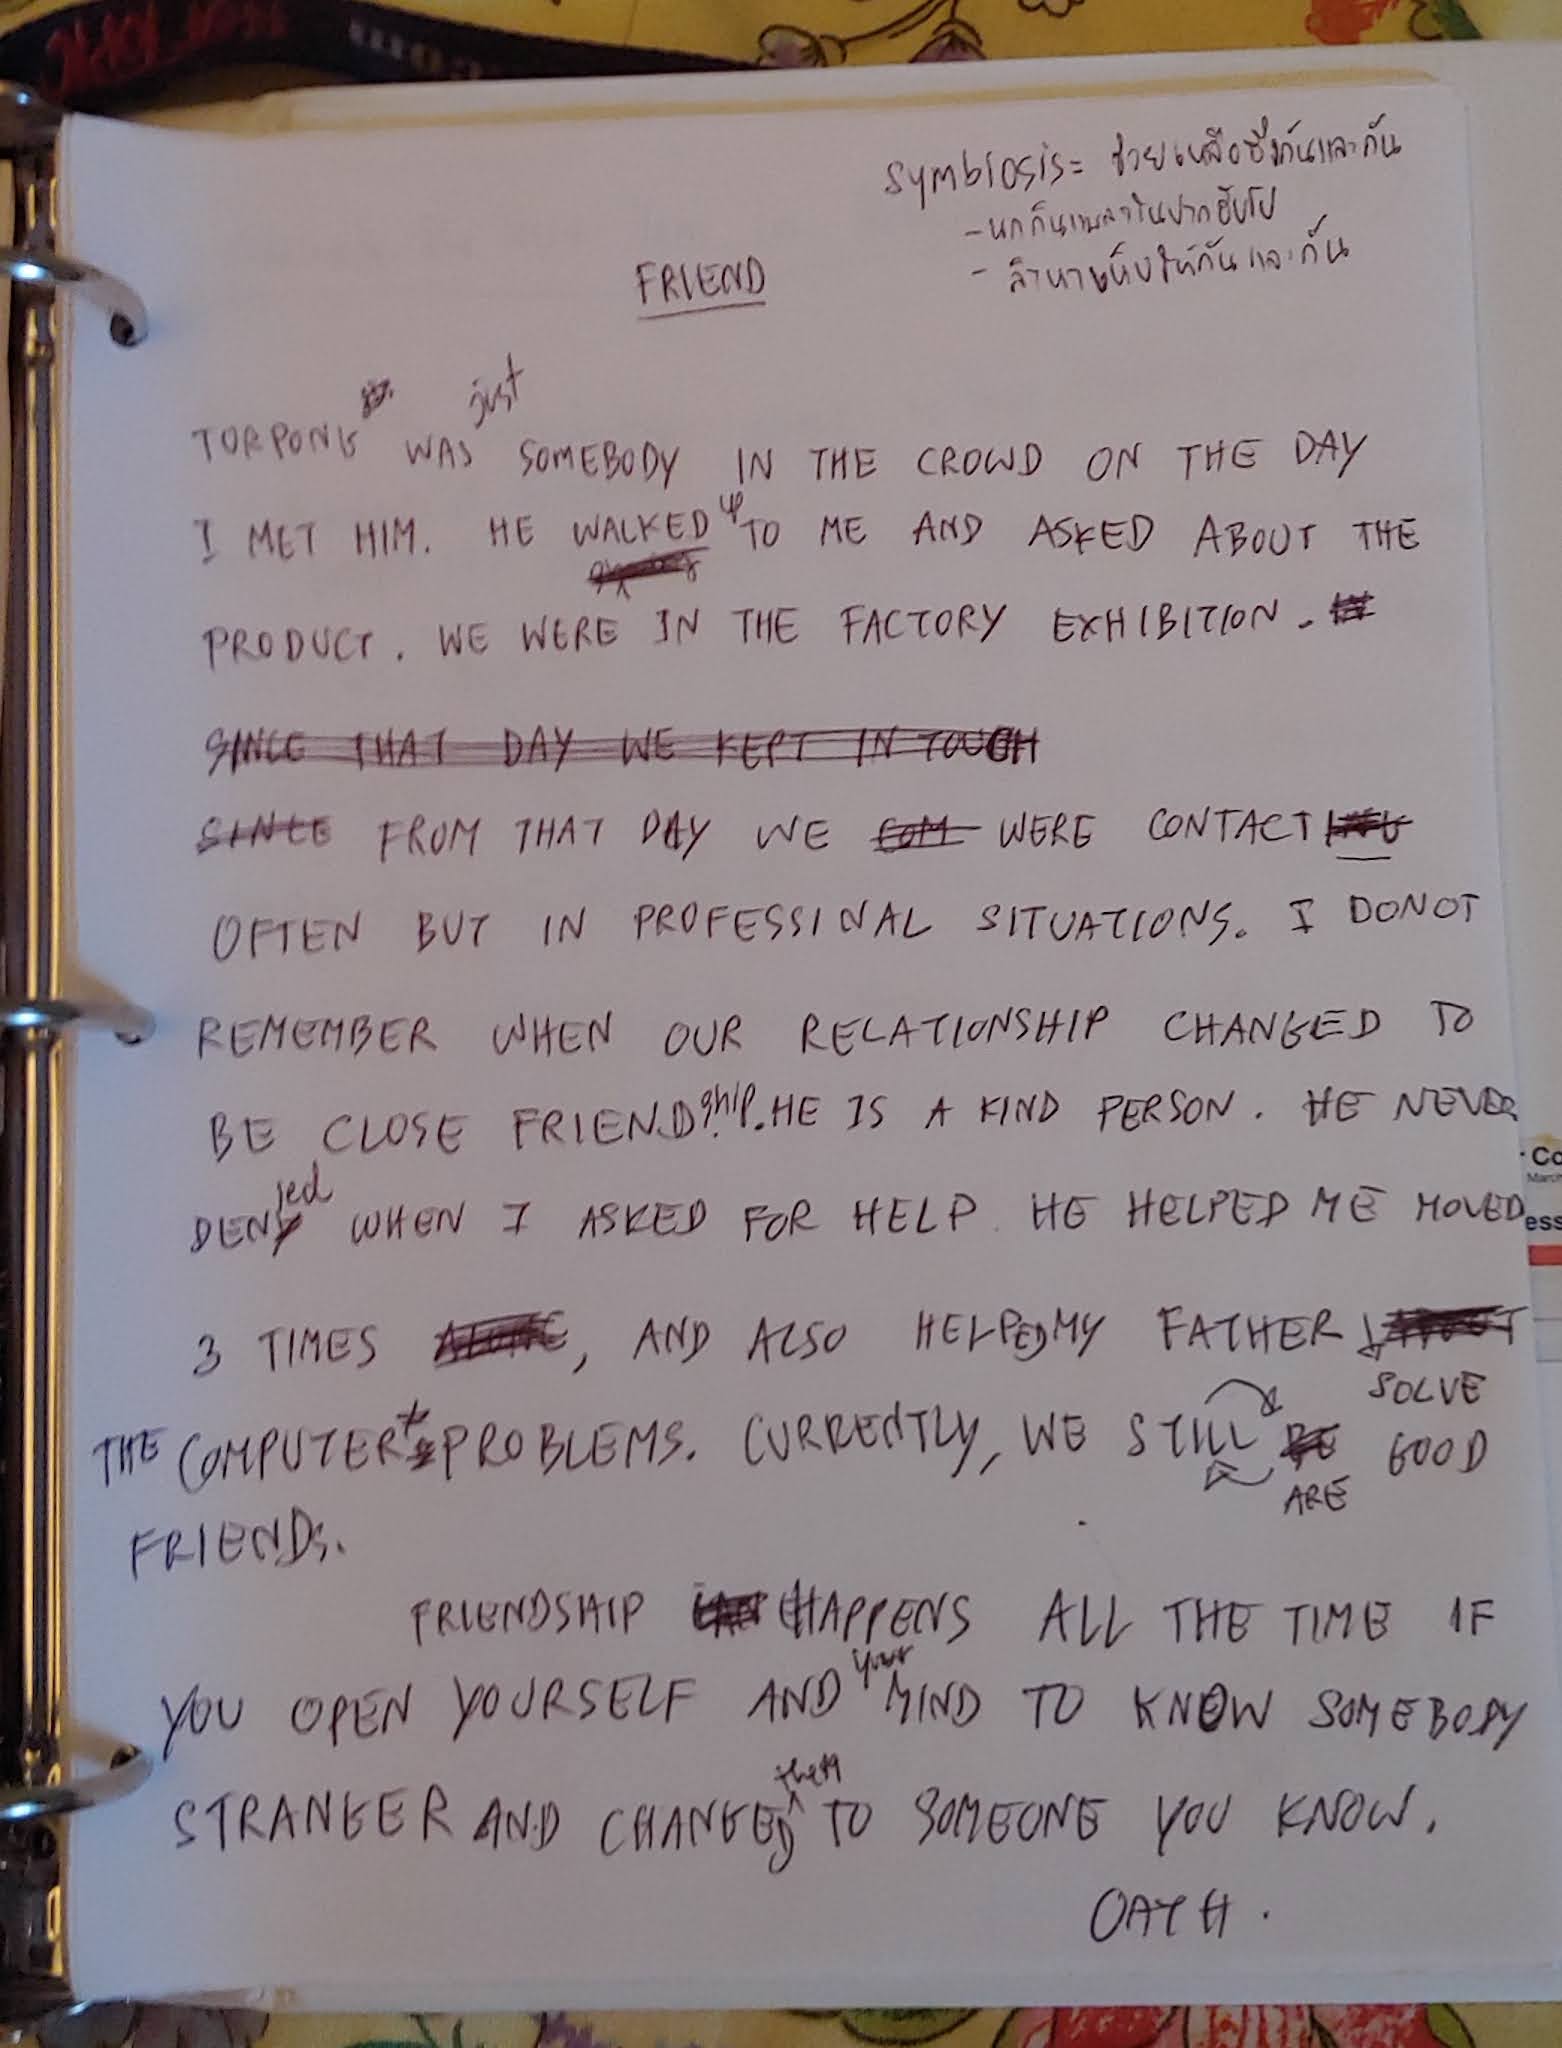 symbiosis = ช่วยเหลือซึ่งกันและกัน
- นกกินแมลงในปากฮิปโป
- ลิงหาเห็บให้กันและกัน
FRIEND
TORPONG WAS just SOMEBODY IN THE CROWD ON THE DAY
I MET HIM. HE WALKED up TO ME AND ASKED ABOUT THE
PRODUCT. WE WERE IN THE FACTORY EXHIBITION.
SINCE THAT DAY WE KEPT IN TOUCH
SINCE FROM THAT DAY WE COM WERE CONTACT
OFTEN BUT IN PROFESSINAL SITUATIONS. I DONOT
REMEMBER WHEN OUR RELATIONSHIP CHANGED TO
BE CLOSE FRIENDship. HE IS A KIND PERSON. HE NEVER
DENied WHEN I ASKED FOR HELP. HE HELPED ME MOVED
3 TIMES, AND ALSO HELPED MY FATHER
SOLVE
THE COMPUTER PROBLEMS. CURRENTLY, WE STILL BE GOOD
ARE
FRIENDS.
FRIENDSHIP CAN HAPPENS ALL THE TIME IF
YOU OPEN YOURSELF AND your MIND TO KNOW SOMEBODY
STRANGER AND CHANGED them TO SOMEONE YOU KNOW.
OATH.
Co
March
ess